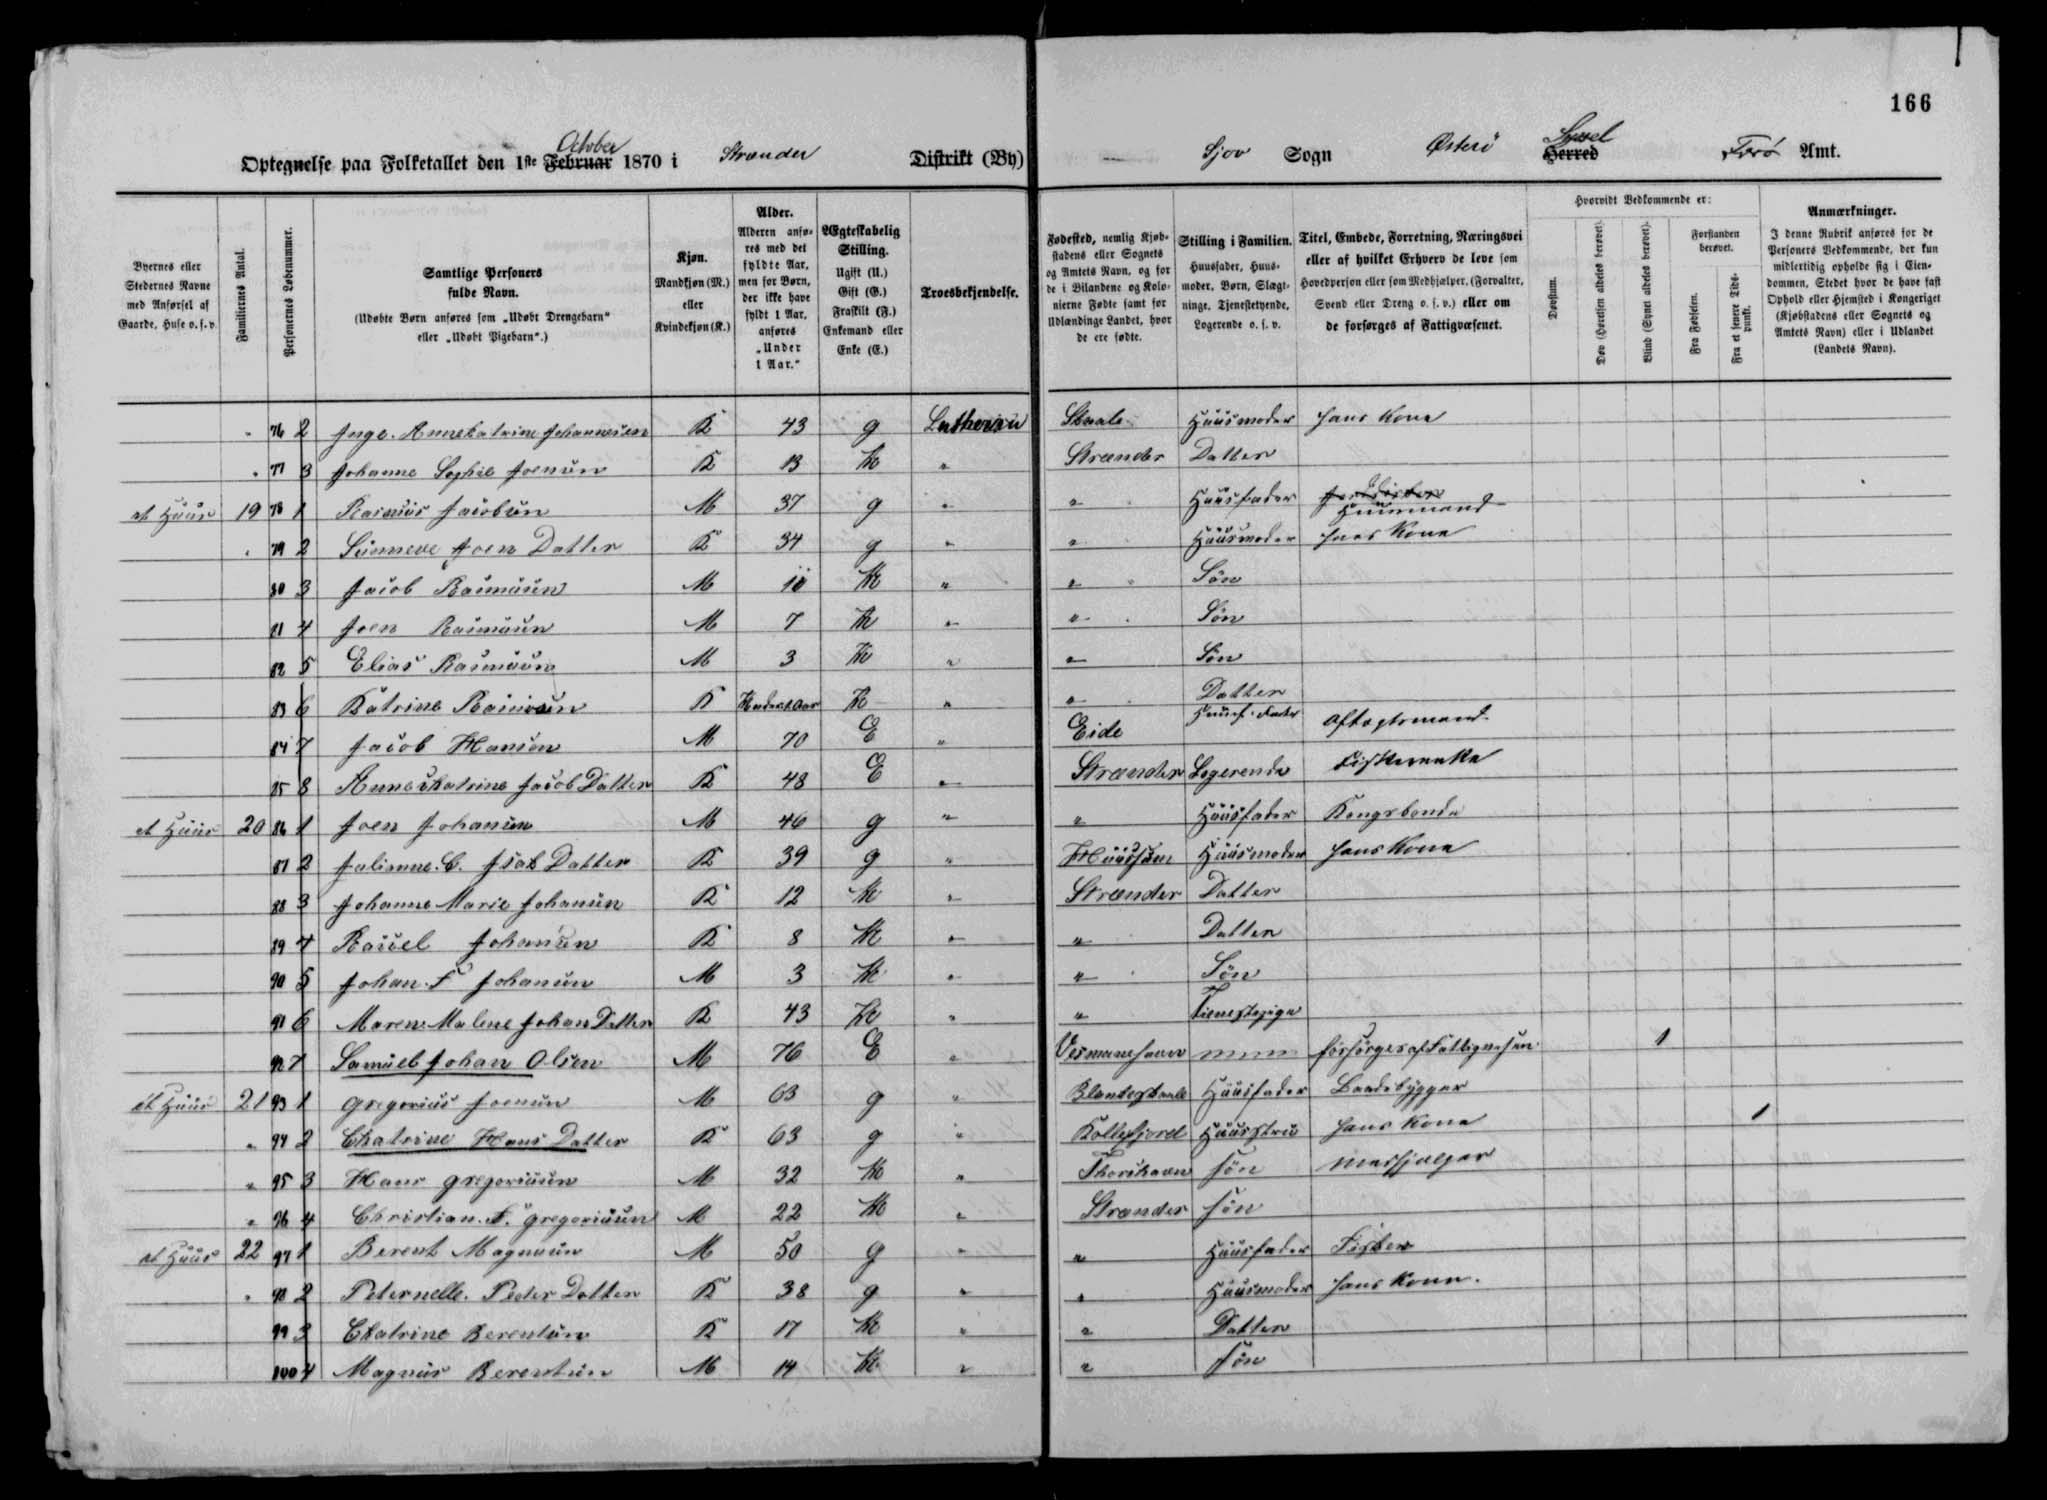 166
October
Optegnelse paa Folketallet den 1ste Februar 1870 i Strænder Distrikt (By)
Sjov Sogn Østerö Syssel Herred Færö Amt.
Byernes eller Stedernes Navne med Anførsel af Gaarde, Huse o.s.v.
Familiernes Antal.
Personernes Løbenummer.
Samtlige Personers fulde Navn.
(Udøbte Børn anføres som „Udøbt Drengebarn“ eller „Udøbt Pigebarn“.)
Kjøn.
Mandkjøn (M.) eller Kvindekjøn (K.)
Alder.
Alderen anføres med det fyldte Aar, men for Børn, der ikke have fyldt 1 Aar, anføres „Under 1 Aar.“
Ægteskabelig Stilling.
Ugift (U.) Gift (G.) Fraskilt (F.) Enkemand eller Enke (E.)
Troesbekjendelse.
Fødested, nemlig Kjøbstadens eller Sognets og Amtets Navn, og for de i Bilandene og Kolonierne Fødte samt for Udlændinge Landet, hvor de ere fødte.
Stilling i Familien.
Huusfader, Huusmoder, Børn, Slægtninge, Tjenestetyende, Logerende o.s.v.
Titel, Embede, Forretning, Næringsvei eller af hvilket Erhverv de leve som Hovedperson eller som Medhjælper, (Forvalter, Svend eller Dreng o.s.v.) eller om de forsørges af Fattigvæsenet.
Hvorvidt Vedkommende er:
Døvstum.
Døv (Hørelsen aldeles berøvet).
Blind (Synet aldeles berøvet).
Forstanden berøvet.
Fra Fødselen.
Fra et senere Tidspunkt.
Anmærkninger.
I denne Rubrik anføres for de Personers Vedkommende, der kun midlertidig opholde sig i Eiendommen, Stedet hvor de have fast Ophold eller Hjemsted i Kongeriget (Kjøbstadens eller Sognets og Amtets Navn) eller i Udlandet (Landets Navn).
76 2 Inge. Annekatrine Johannesen K 43 g Lutheran Skaale Huusmoder hans Kone
" 77 3 Johanne Sophie Joensen K 13 U " Strænder Datter
et Huus 19 78 1 Rasmus Jacobsen M 37 g " " Huusfader Huusmand
" 79 2 Sünneve Joen Datter K 34 g " " Huusmoder hans Kone
80 3 Jacob Rasmusen M 10 U " " Sön
81 4 Joen Rasmusen M 7 U " " Sön
82 5 Elias Rasmusen M 3 U " " Sön
83 6 Katrine Rasmusen K Under 1 Aar U " " Datter
84 7 Jacob Hansen M 70 E " Eide Huusf. Fader Aftægtsmand
85 8 Anne Chatrine Jacob Datter K 48 E " Strænder Logerende
et Huus 20 86 1 Joen Johansen M 46 g " " Huusfader Kongsbonde
87 2 Julianne. C. Isak Datter K 39 g " Huusmoder hans Kone
88 3 Johanne Marie Johansen K 12 U " Strænder Datter
89 4 Rassel Johansen K 8 U " " Datter
90 5 Johan. F Johansen M 3 U " " Sön
91 6 Maren Malene Johan Datter K 43 U " " Tienestepige
92 7 Samuel Johan Olsen M 76 E " Vesmanehavn forsörges af Fattigvæsen 1
et Huus 21 93 1 gregorius Joensen M 63 g " Huusfader Baadebygger
" 94 2 Chatrine Hans Datter K 63 g " Kollefjord Huusstru hans Kone 1
" 95 3 Hans gregoriusen M 32 U " Thorshavn sön
" 96 4 Christian. F. gregoriusen M 22 U " Strænder sön
et Huus 22 97 1 Berent Magnusen M 50 g " " Huusfader Fisker
" 98 2 Peternelle. Peder Datter K 38 g " " Huusmoder hans Kone.
99 3 Chatrine Berentsen K 17 U " " Datter
100 4 Magnus Berentsen M 14 U " " sön